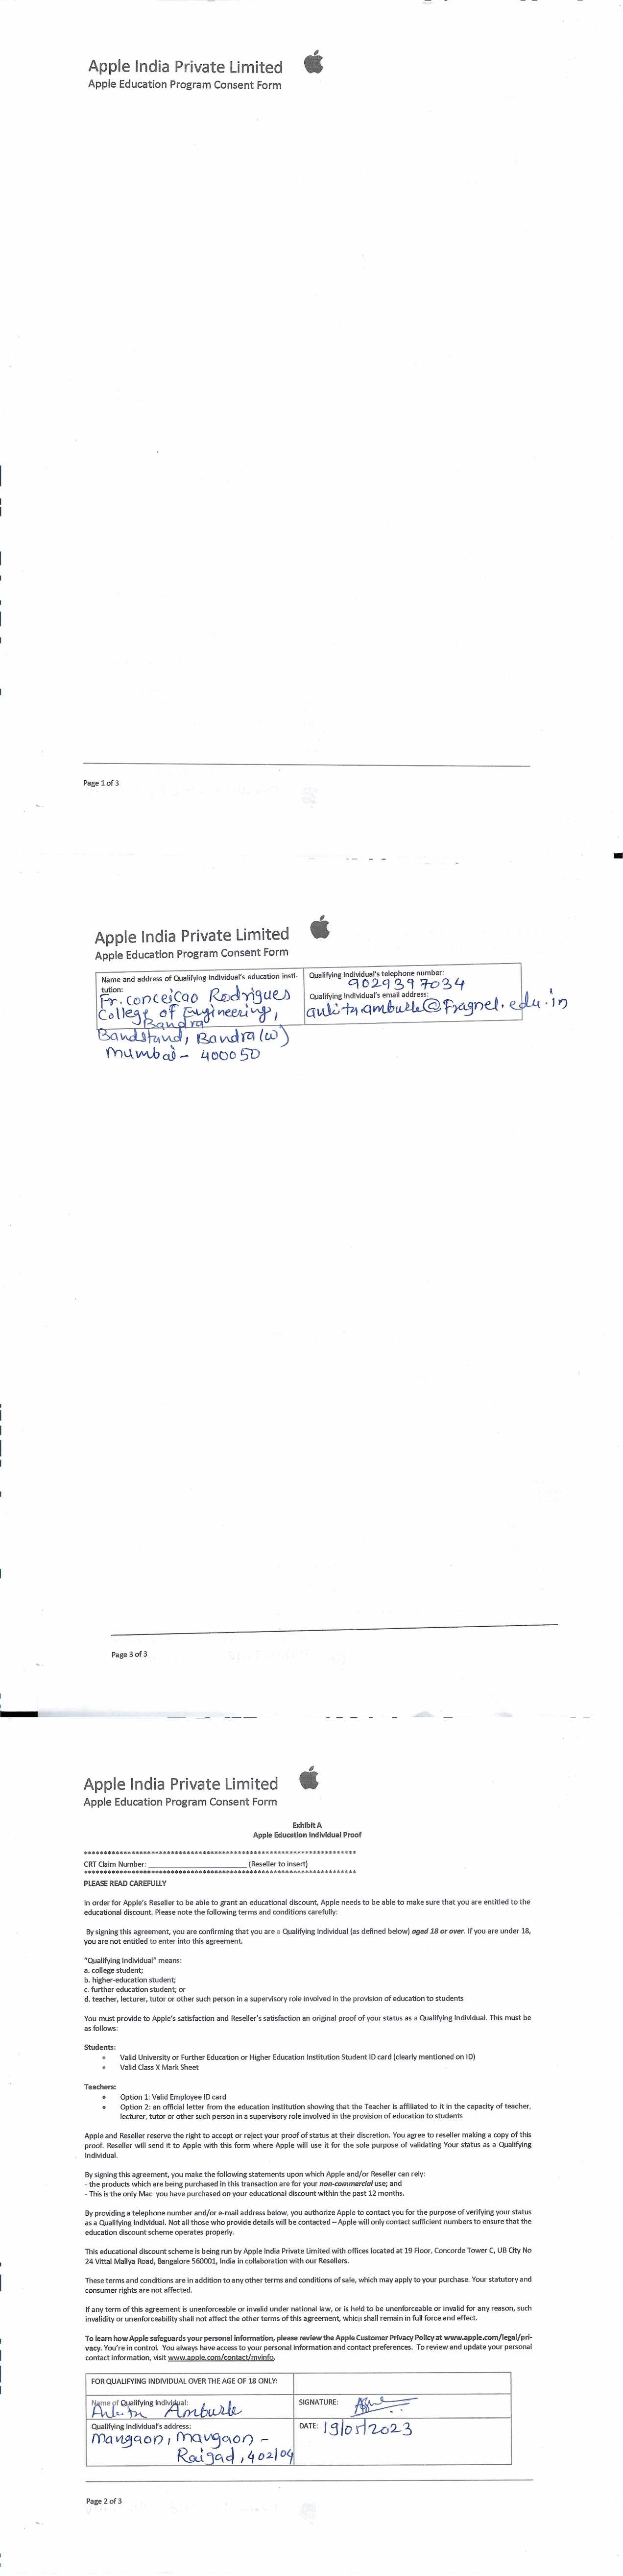 Apple India Private Limited
Apple Education Program Consent Form
Page 1 of 3
Apple India Private Limited
Apple Education Program Consent Form
Name and address of Qualifying Individual's education insti-
tution:
Fr. conceicao Rodrigues
College of Engineering,
Bandra
Bandstand, Bandra (w)
mumbai - 400050
Qualifying Individual's telephone number:
9029397034
Qualifying Individual's email address:
@fragnel.edu.in
Page 3 of 3
Apple India Private Limited
Apple Education Program Consent Form
Exhibit A
Apple Education Individual Proof
********************************************************************
CRT Claim Number: ________________________ (Reseller to insert)
********************************************************************
PLEASE READ CAREFULLY
In order for Apple's Reseller to be able to grant an educational discount, Apple needs to be able to make sure that you are entitled to the
educational discount. Please note the following terms and conditions carefully:
By signing this agreement, you are confirming that you are a Qualifying Individual (as defined below) aged 18 or over. If you are under 18,
you are not entitled to enter into this agreement.
"Qualifying Individual" means:
a. college student;
b. higher-education student;
c. further education student; or
d. teacher, lecturer, tutor or other such person in a supervisory role involved in the provision of education to students
You must provide to Apple's satisfaction and Reseller's satisfaction an original proof of your status as a Qualifying Individual. This must be
as follows:
Students:
• Valid University or Further Education or Higher Education Institution Student ID card (clearly mentioned on ID)
• Valid Class X Mark Sheet
Teachers:
• Option 1: Valid Employee ID card
• Option 2: an official letter from the education institution showing that the Teacher is affiliated to it in the capacity of teacher,
lecturer, tutor or other such person in a supervisory role involved in the provision of education to students
Apple and Reseller reserve the right to accept or reject your proof of status at their discretion. You agree to reseller making a copy of this
proof. Reseller will send it to Apple with this form where Apple will use it for the sole purpose of validating Your status as a Qualifying
Individual.
By signing this agreement, you make the following statements upon which Apple and/or Reseller can rely:
- the products which are being purchased in this transaction are for your non-commercial use; and
- This is the only Mac you have purchased on your educational discount within the past 12 months.
By providing a telephone number and/or e-mail address below, you authorize Apple to contact you for the purpose of verifying your status
as a Qualifying Individual. Not all those who provide details will be contacted – Apple will only contact sufficient numbers to ensure that the
education discount scheme operates properly.
This educational discount scheme is being run by Apple India Private Limited with offices located at 19 Floor, Concorde Tower C, UB City No
24 Vittal Mallya Road, Bangalore 560001, India in collaboration with our Resellers.
These terms and conditions are in addition to any other terms and conditions of sale, which may apply to your purchase. Your statutory and
consumer rights are not affected.
If any term of this agreement is unenforceable or invalid under national law, or is held to be unenforceable or invalid for any reason, such
invalidity or unenforceability shall not affect the other terms of this agreement, which shall remain in full force and effect.
To learn how Apple safeguards your personal information, please review the Apple Customer Privacy Policy at www.apple.com/legal/pri-
vacy. You're in control. You always have access to your personal information and contact preferences. To review and update your personal
contact information, visit www.apple.com/contact/myinfo.
FOR QUALIFYING INDIVIDUAL OVER THE AGE OF 18 ONLY:
Name of Qualifying Individual:
Amburle
SIGNATURE:
Qualifying Individual's address:
mangaon, mangaon -
Raigad, 402104
DATE: 19/05/2023
Page 2 of 3